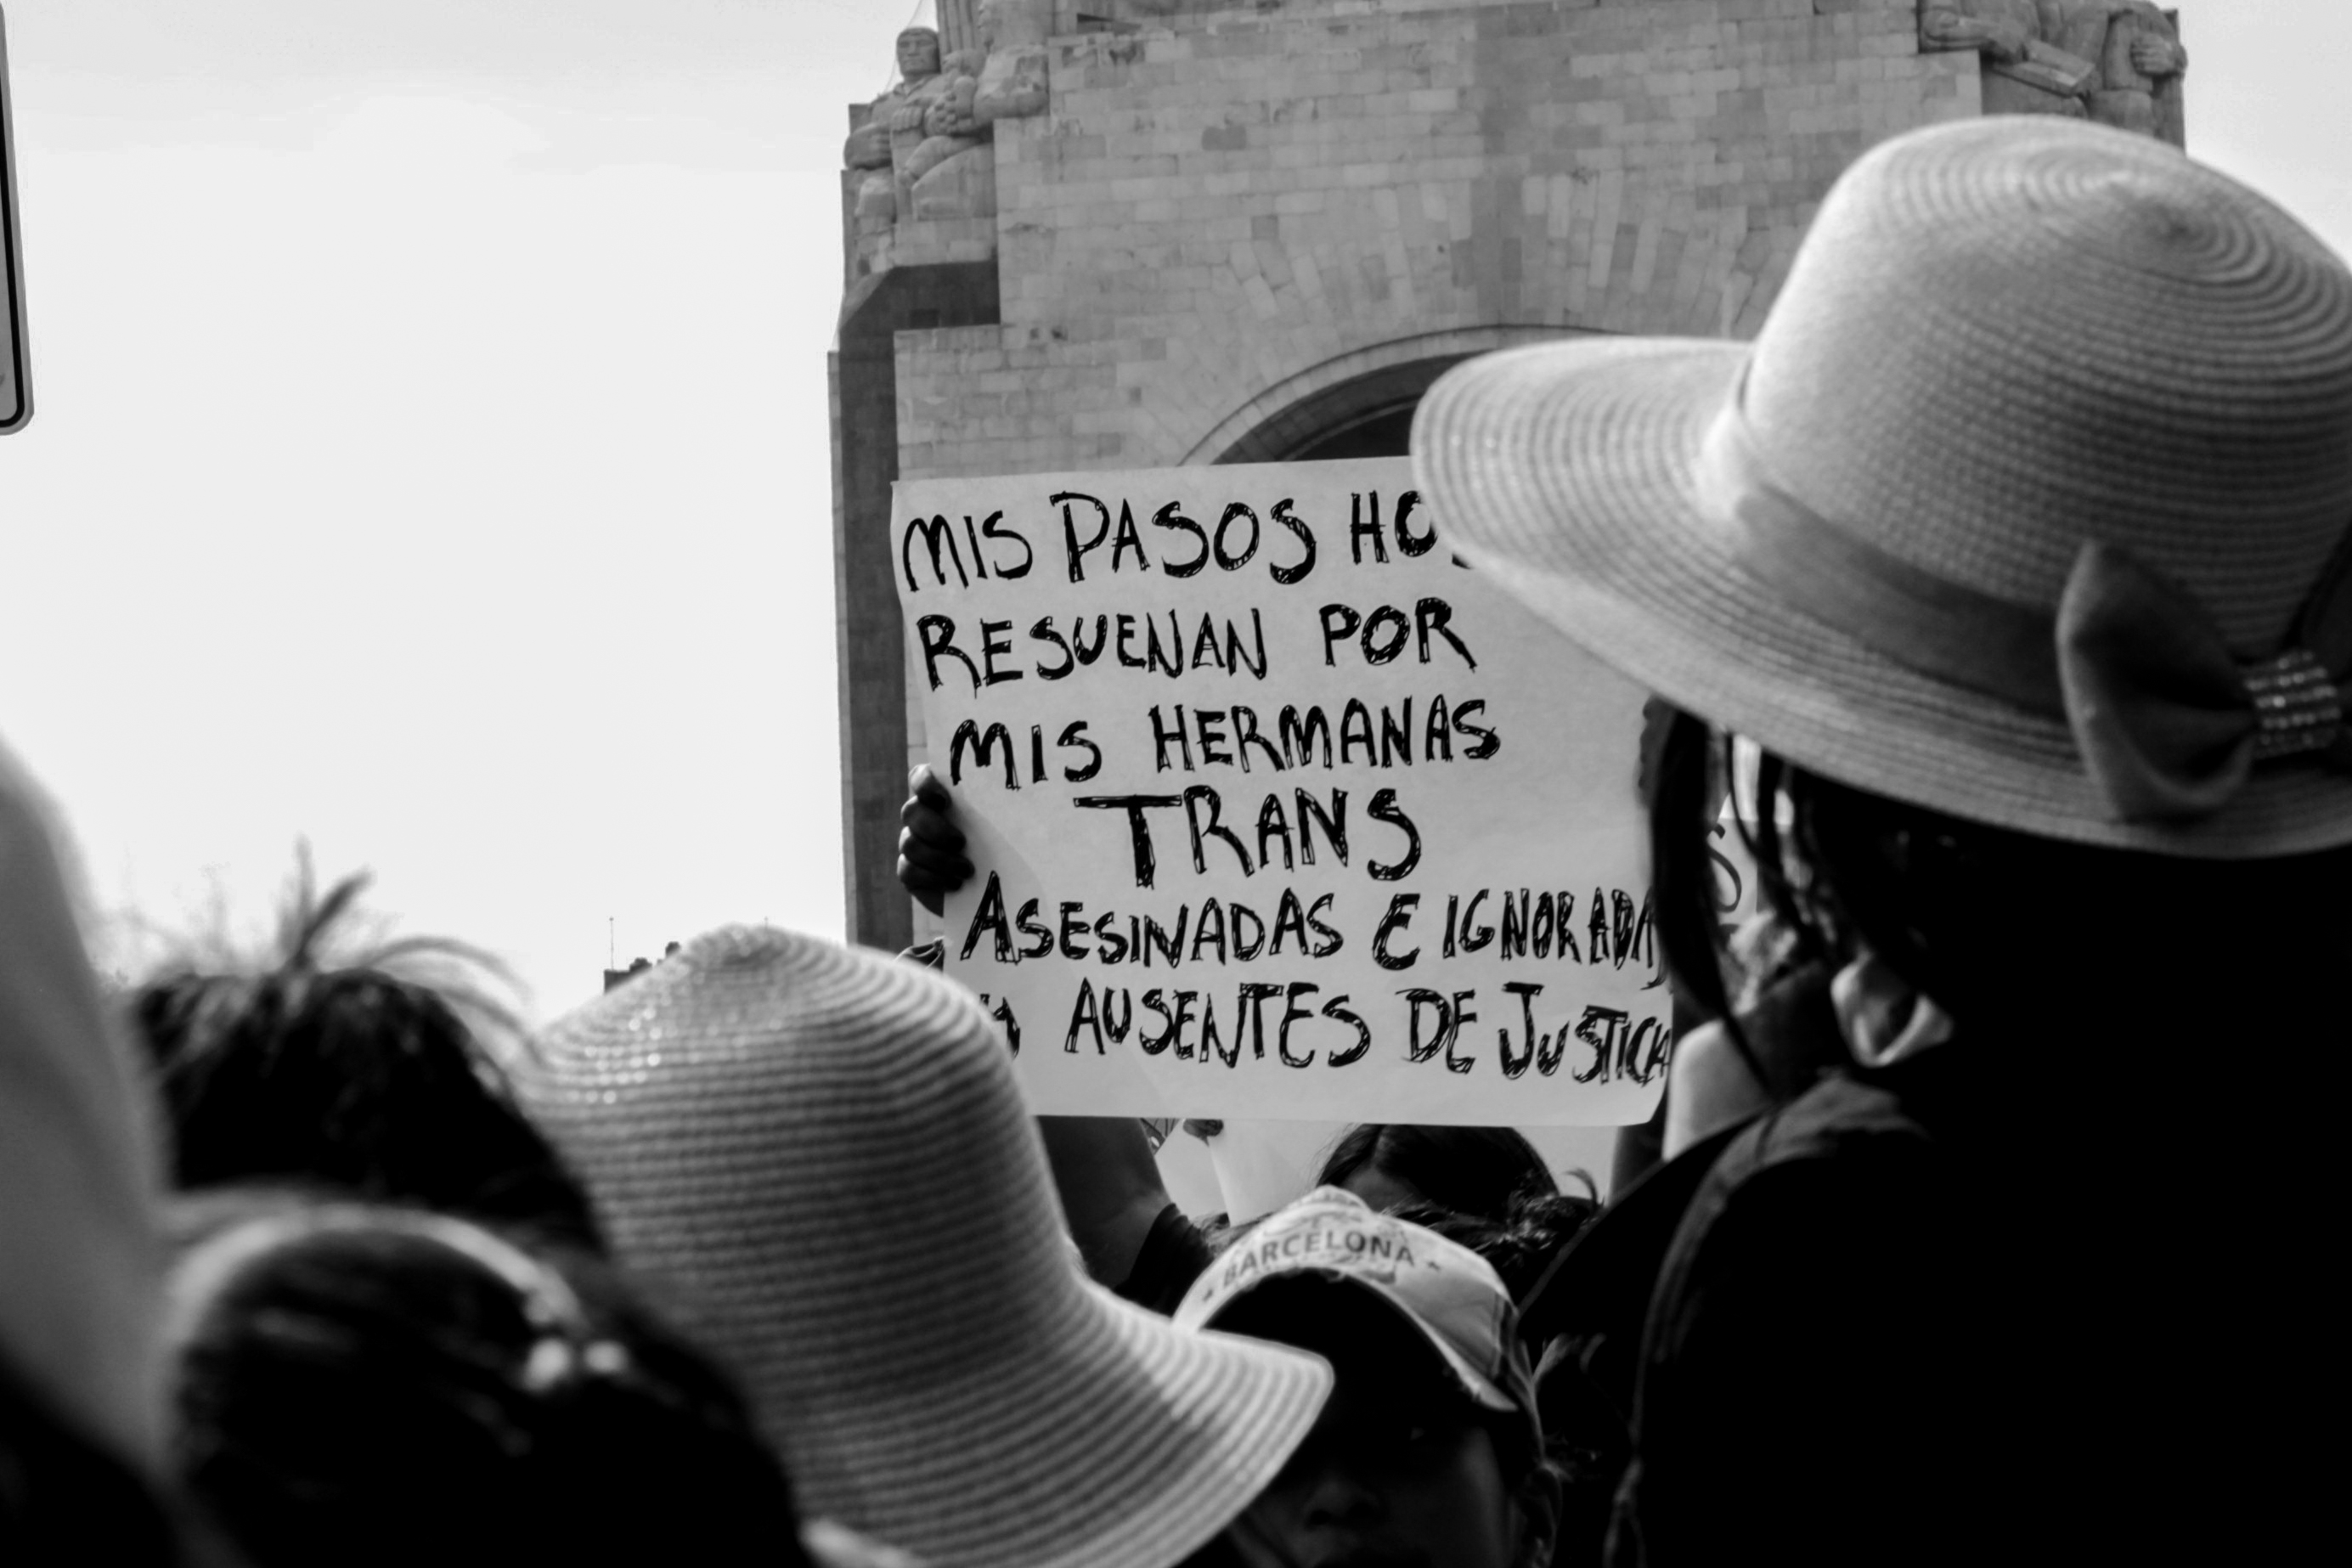 MIS PASOS
RESUENAN POR
MIS HERMANAS
TRANS
ASESINADAS E IGNORADAS
AUSENTES DE JUSTICIA
BARCELONA